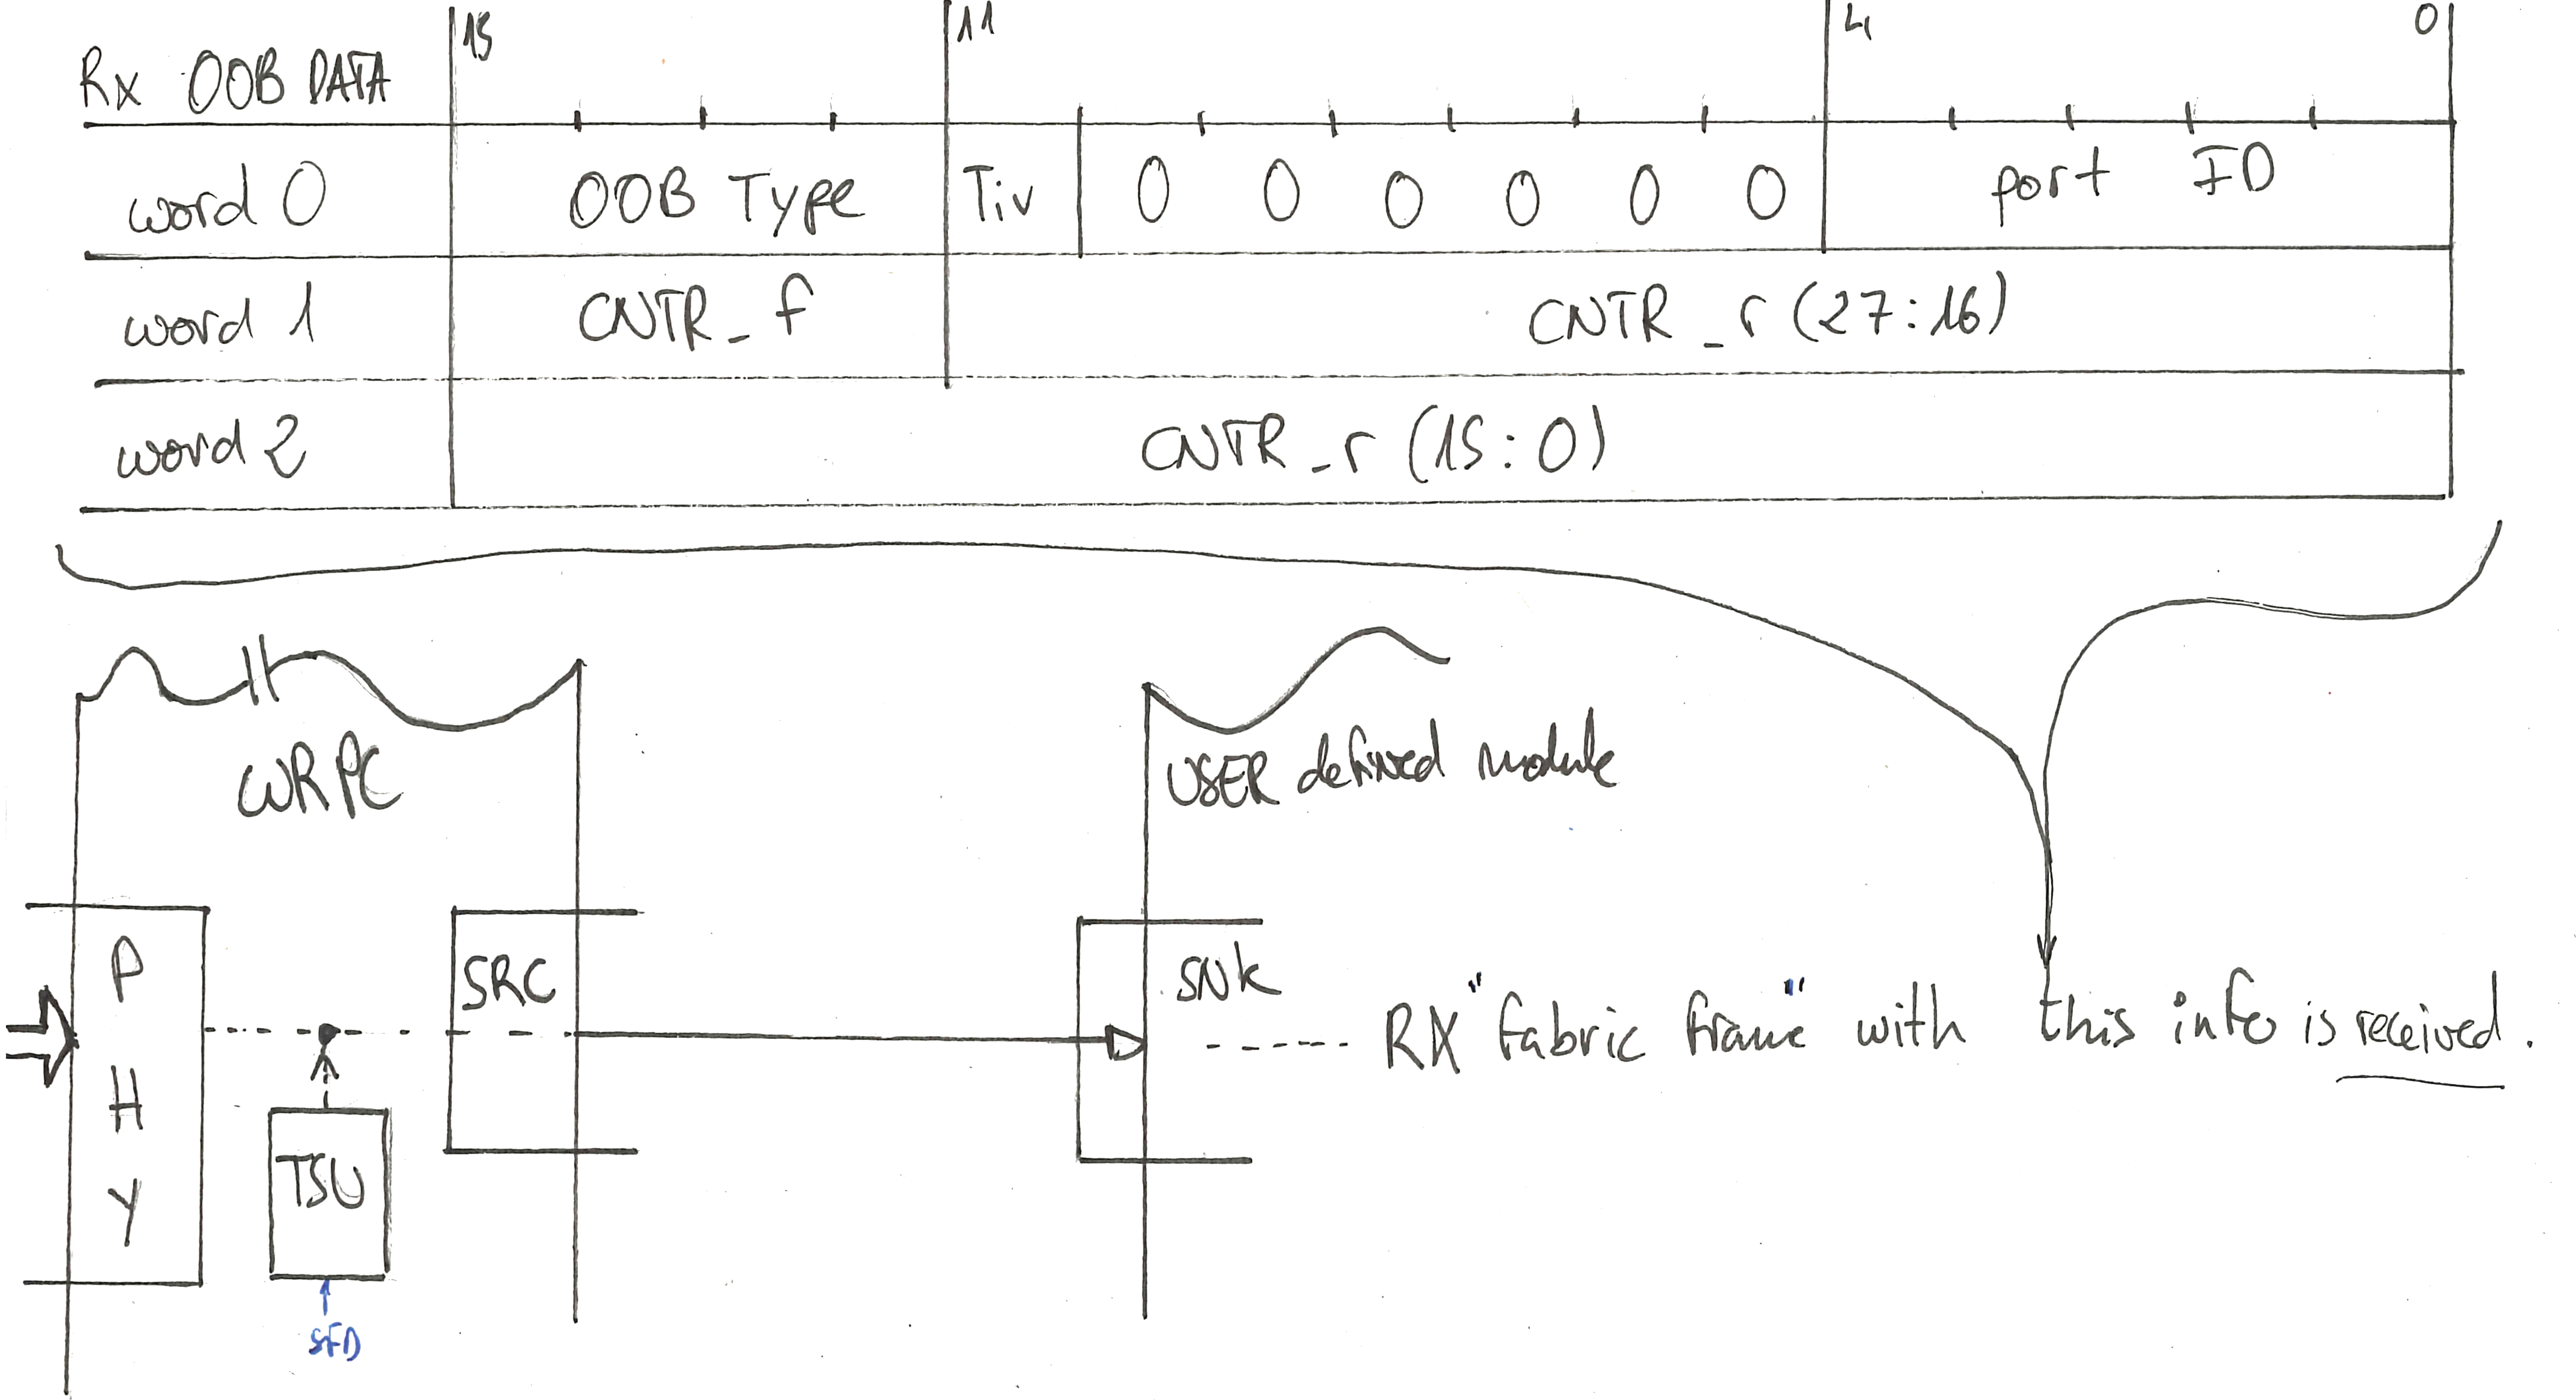 15 11 4 0
Rx OOB DATA
word 0 OOB Type Tiv 0 0 0 0 0 0 port ID
word 1 CNTR_f CNTR_r (27:16)
word 2 CNTR_r (15:0)
WRPC
USER defined module
PHY
SRC
SNK
RX "fabric frame" with this info is received.
TSU
SFD